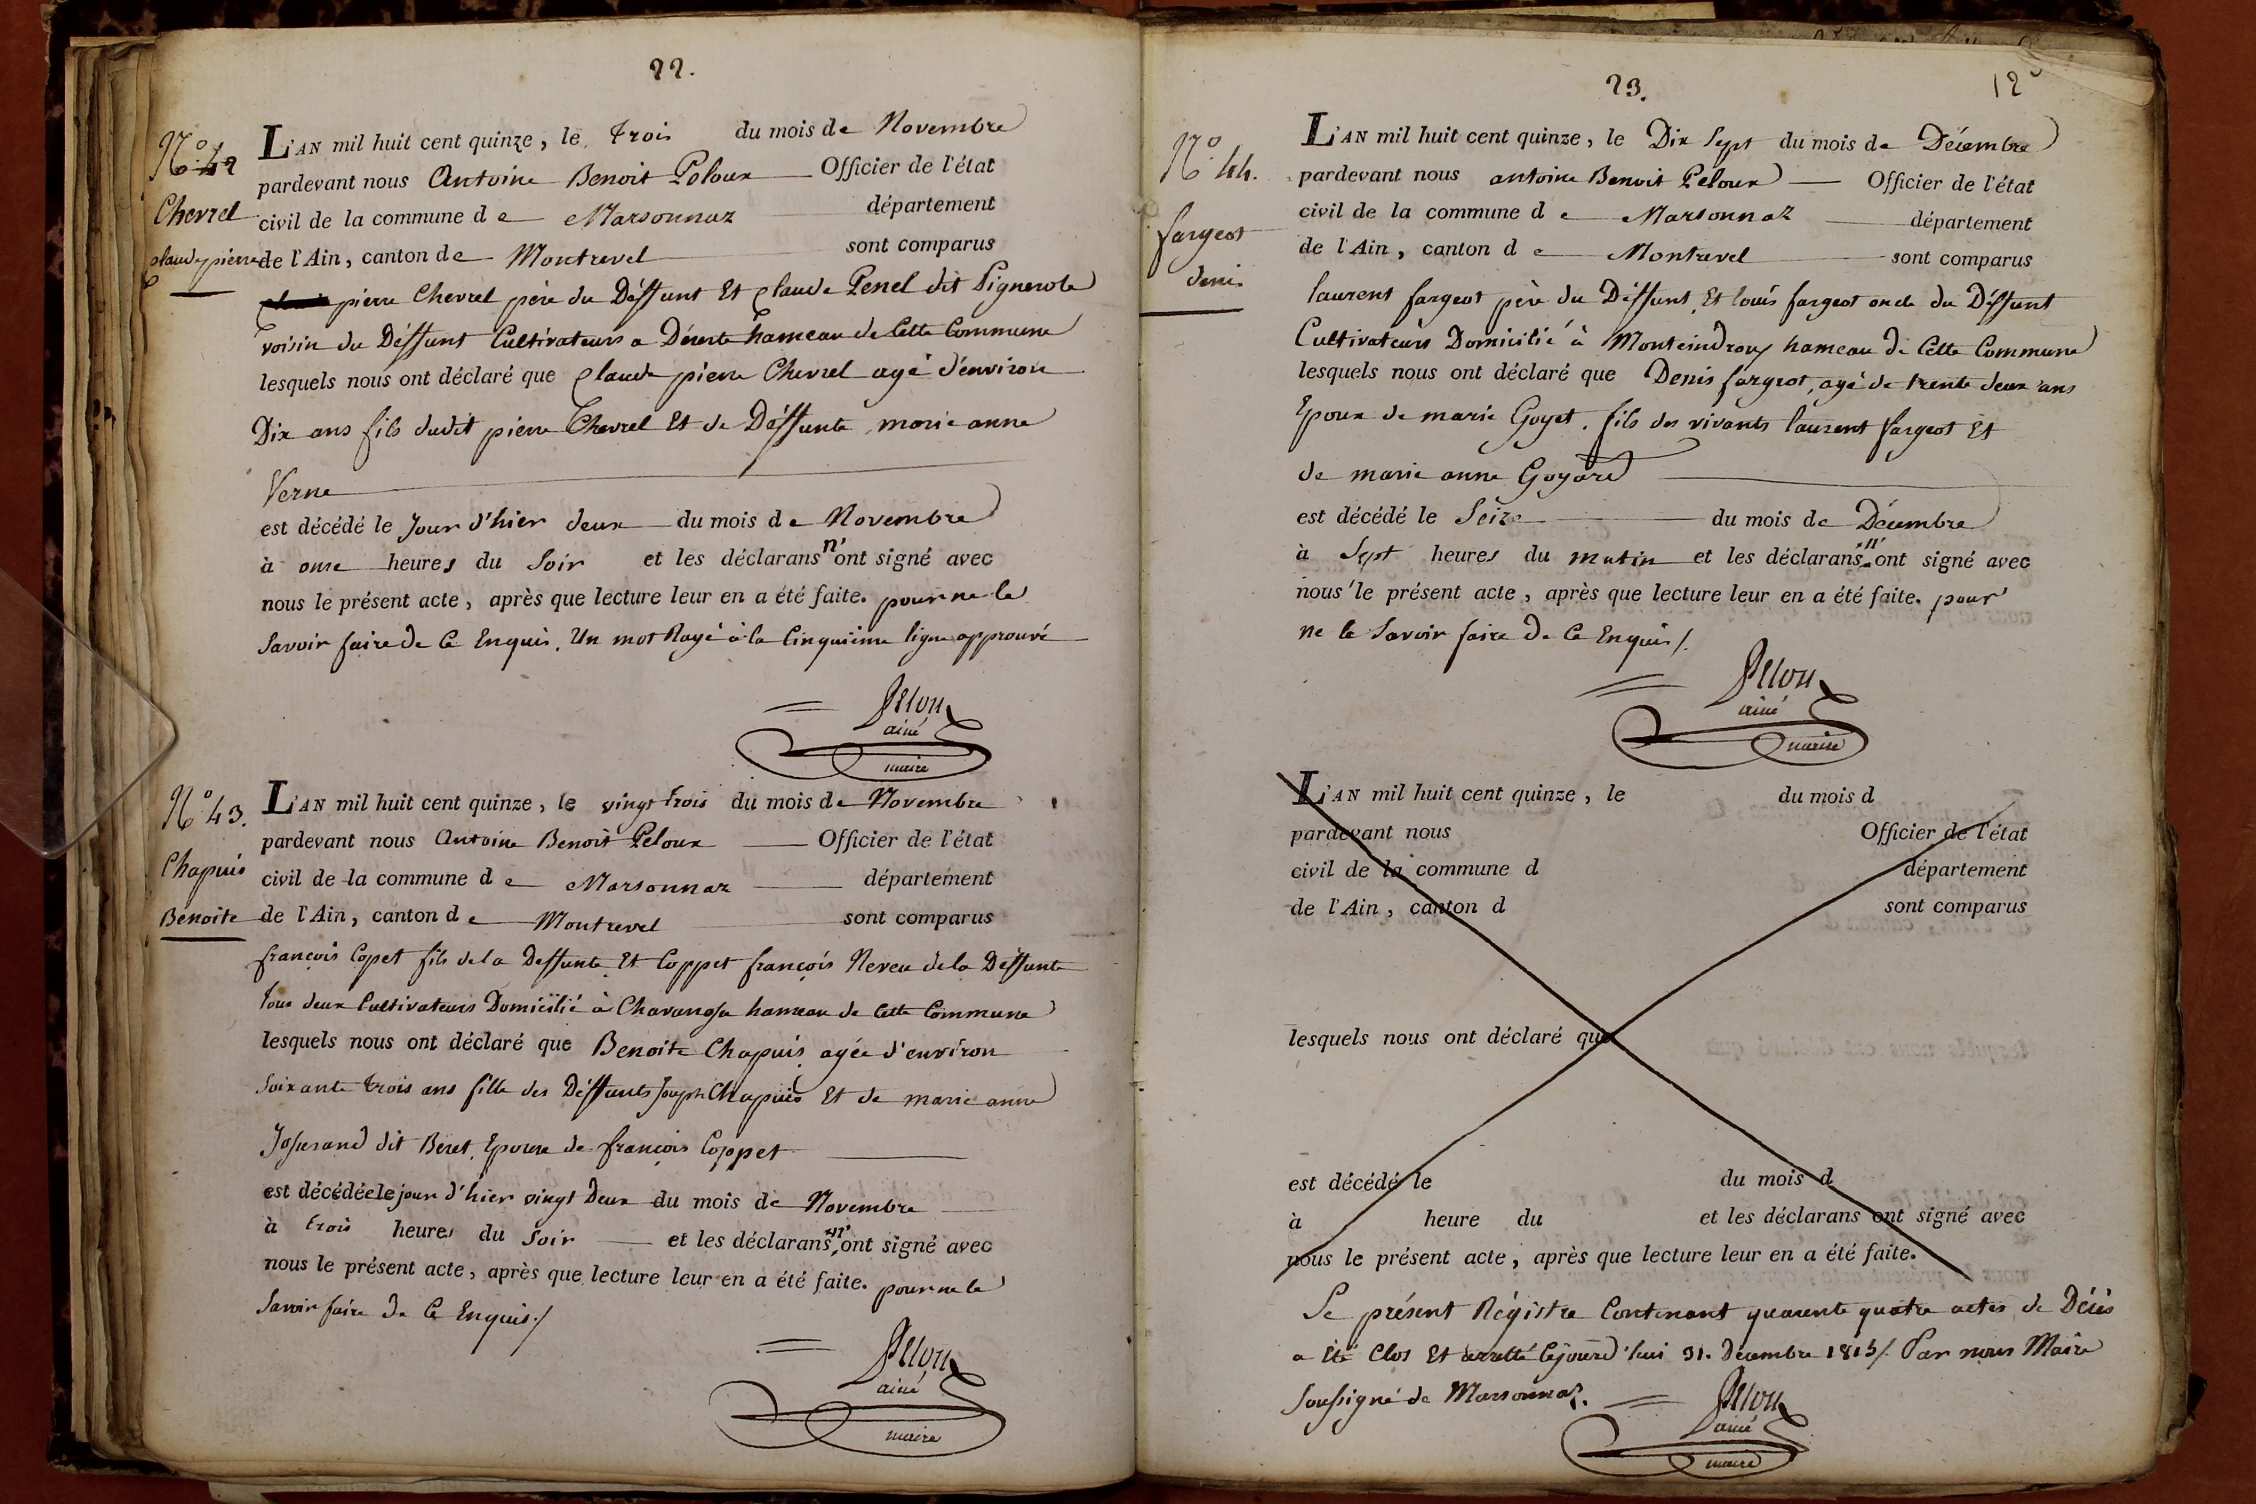 22.
N.o 42
Chevrel
claude pierre
L'AN mil huit cent quinze, le trois du mois de Novembre
pardevant nous Antoine Benoit Peloux Officier de l'état
civil de la commune de Marsonnaz département
de l'Ain, canton de Montrevel sont comparus
pierre Chevrel père du Déffunt Et claude Penel dit Pignerole
voisin du Déffunt Cultivateurs a Déverte hameau de Cette Commune
lesquels nous ont déclaré que claude pierre Chevrel agé d'environ
Dix ans fils dudit pierre Chevrel Et de Déffunte marie anne
Verne
est décédé le Jour d'hier deux du mois de Novembre
à onse heures du Soir et les déclarans n'ont signé avec
nous le présent acte, après que lecture leur en a été faite. pour ne le
Savoir faire de Ce Enquis. Un mot Rayé à la Cinquième ligne approuvé
Peloux
ainé
maire
N.o 43.
Chapuis
Benoite
L'AN mil huit cent quinze, le vingt trois du mois de Novembre
pardevant nous Antoine Benoit Peloux Officier de l'état
civil de la commune de Marsonnaz département
de l'Ain, canton de Montrevel sont comparus
françois Copet fils de la Deffunte Et Coppet françois Neveu de la Déffunte
tous deux Cultivateurs Domicilié à Chavanosse hameau de Cette Commune
lesquels nous ont déclaré que Benoite Chapuis agée d'environ
Soixante trois ans fille des Déffunts Joseph Chapuis Et de marie anne
Josserand dit Beret, Epouse de françois Coppet
est décédée le jour d'hier vingt Deux du mois de Novembre
à trois heures du Soir et les déclarans n'ont signé avec
nous le présent acte, après que lecture leur en a été faite. pour ne le
Savoir faire De Ce Enquis./
Peloux
ainé
maire
23.
12
N.o 44.
fargeot
denis
L'AN mil huit cent quinze, le Dix Sept du mois de Décembre
pardevant nous antoine Benoit Peloux Officier de l'état
civil de la commune de Marsonnaz département
de l'Ain, canton de Montrevel sont comparus
laurent fargeot père du Déffunt Et louis fargeot oncle du Déffunt
Cultivateurs Domicilié à Monteindroux hameau de Cette Commune
lesquels nous ont déclaré que Denis fargeot, agé de trente deux ans
Epoux de marie Goyet. fils des vivants laurent fargeot Et
de marie anne Goyard
est décédé le Seize du mois de Décembre
à Sept heures du matin et les déclarans n'ont signé avec
nous le présent acte, après que lecture leur en a été faite. pour
ne le Savoir faire De Ce Enquis/.
Peloux
ainé
maire
L'AN mil huit cent quinze, le du mois d
pardevant nous Officier de l'état
civil de la commune d département
de l'Ain, canton d sont comparus
lesquels nous ont déclaré que
est décédé le du mois d
à heure du et les déclarans ont signé avec
nous le présent acte, après que lecture leur en a été faite.
Le présent Régistre Contenant quarente quatre actes de Décès
a été Clos Et arretté Cejourd'hui 31. Decembre 1815/. Par nous Maire
Soussigné de Marsonnaz.
Peloux
ainé
maire